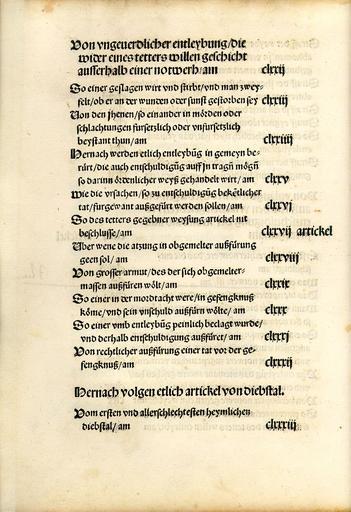 Von vngeuerdlicher entleybung/die
wider eines tetters willen geschicht
ausserhalb einer notwerh/am clxxij
So einer geslagen wirt vnd stirbt/vnd man zwey-
felt/ob er an der wunden oder sunst gestorben sey clxxiij
Von den jhenen/so einander in mörden oder
schlachtungen fursetzlich oder vnfursetzlich
beystant thun/am clxxiiij
Hernach werden etlich entleybūg in gemeyn be-
rürt/die auch entschuldigūg auff jn tragn̄ mögn̄
so darinn ördenlicher weyß gehandelt wirt/am clxxv
wie die vrsachen/so zu entschuldigūg bekētlicher
tat/furgewant außgefürt werden sollen/am clxxvj
So des tetters gegebner weysung artickel nit
beschlusse/am clxxvij artickel
Vber wene die atzung in obgemelter außfürung
geen sol/am clxxviij
Von grosser armut/des der sich obgemelter-
massen außfüren wölt/am clxxix
So einer in der mordacht were/in gefengknuß
köme/vnd sein vnschuld außfürn wölte/am clxxx
So einer vmb entleybūg peinlich beclagt wurde/
vnd derhalb entschuldigung außfüret/am clxxxj
Von rechtlicher außfürung einer tat vor der ge-
fengknuß/am clxxxij
Hernach volgen etlich artickel von diebstal.
Vom ersten vnd allerschlechtesten heymlichen
diebstal/am clxxxiij